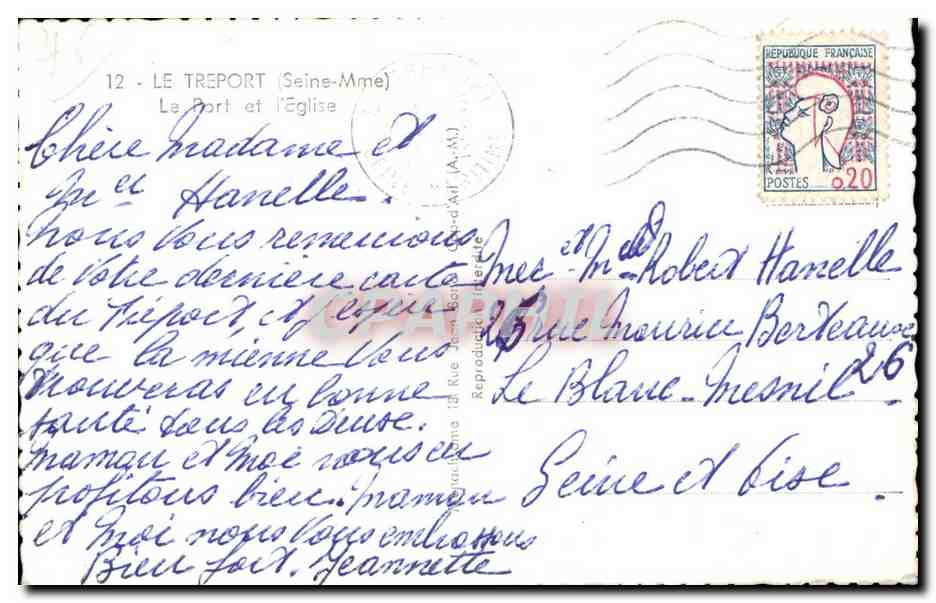 12 - LE TREPORT (Seine-Mme)
Le Port et l'Eglise
RÉPUBLIQUE FRANÇAISE
POSTES 0,20
Chère Madame et
Mr et Hanelle.
nous vous remercions
de votre dernière carte
du Tréport, et j'espère
que la mienne vous
trouveras en bonne
santé tous les deux.
maman et moi nous en
profitons bien. maman
et moi nous vous embrassons
Bien fort. Jeannette
et Robert Hanelle
rue Maurice Berteaux
26
Le Blanc-Mesnil
Seine et Oise
Reproduction interdite
CPARAMA